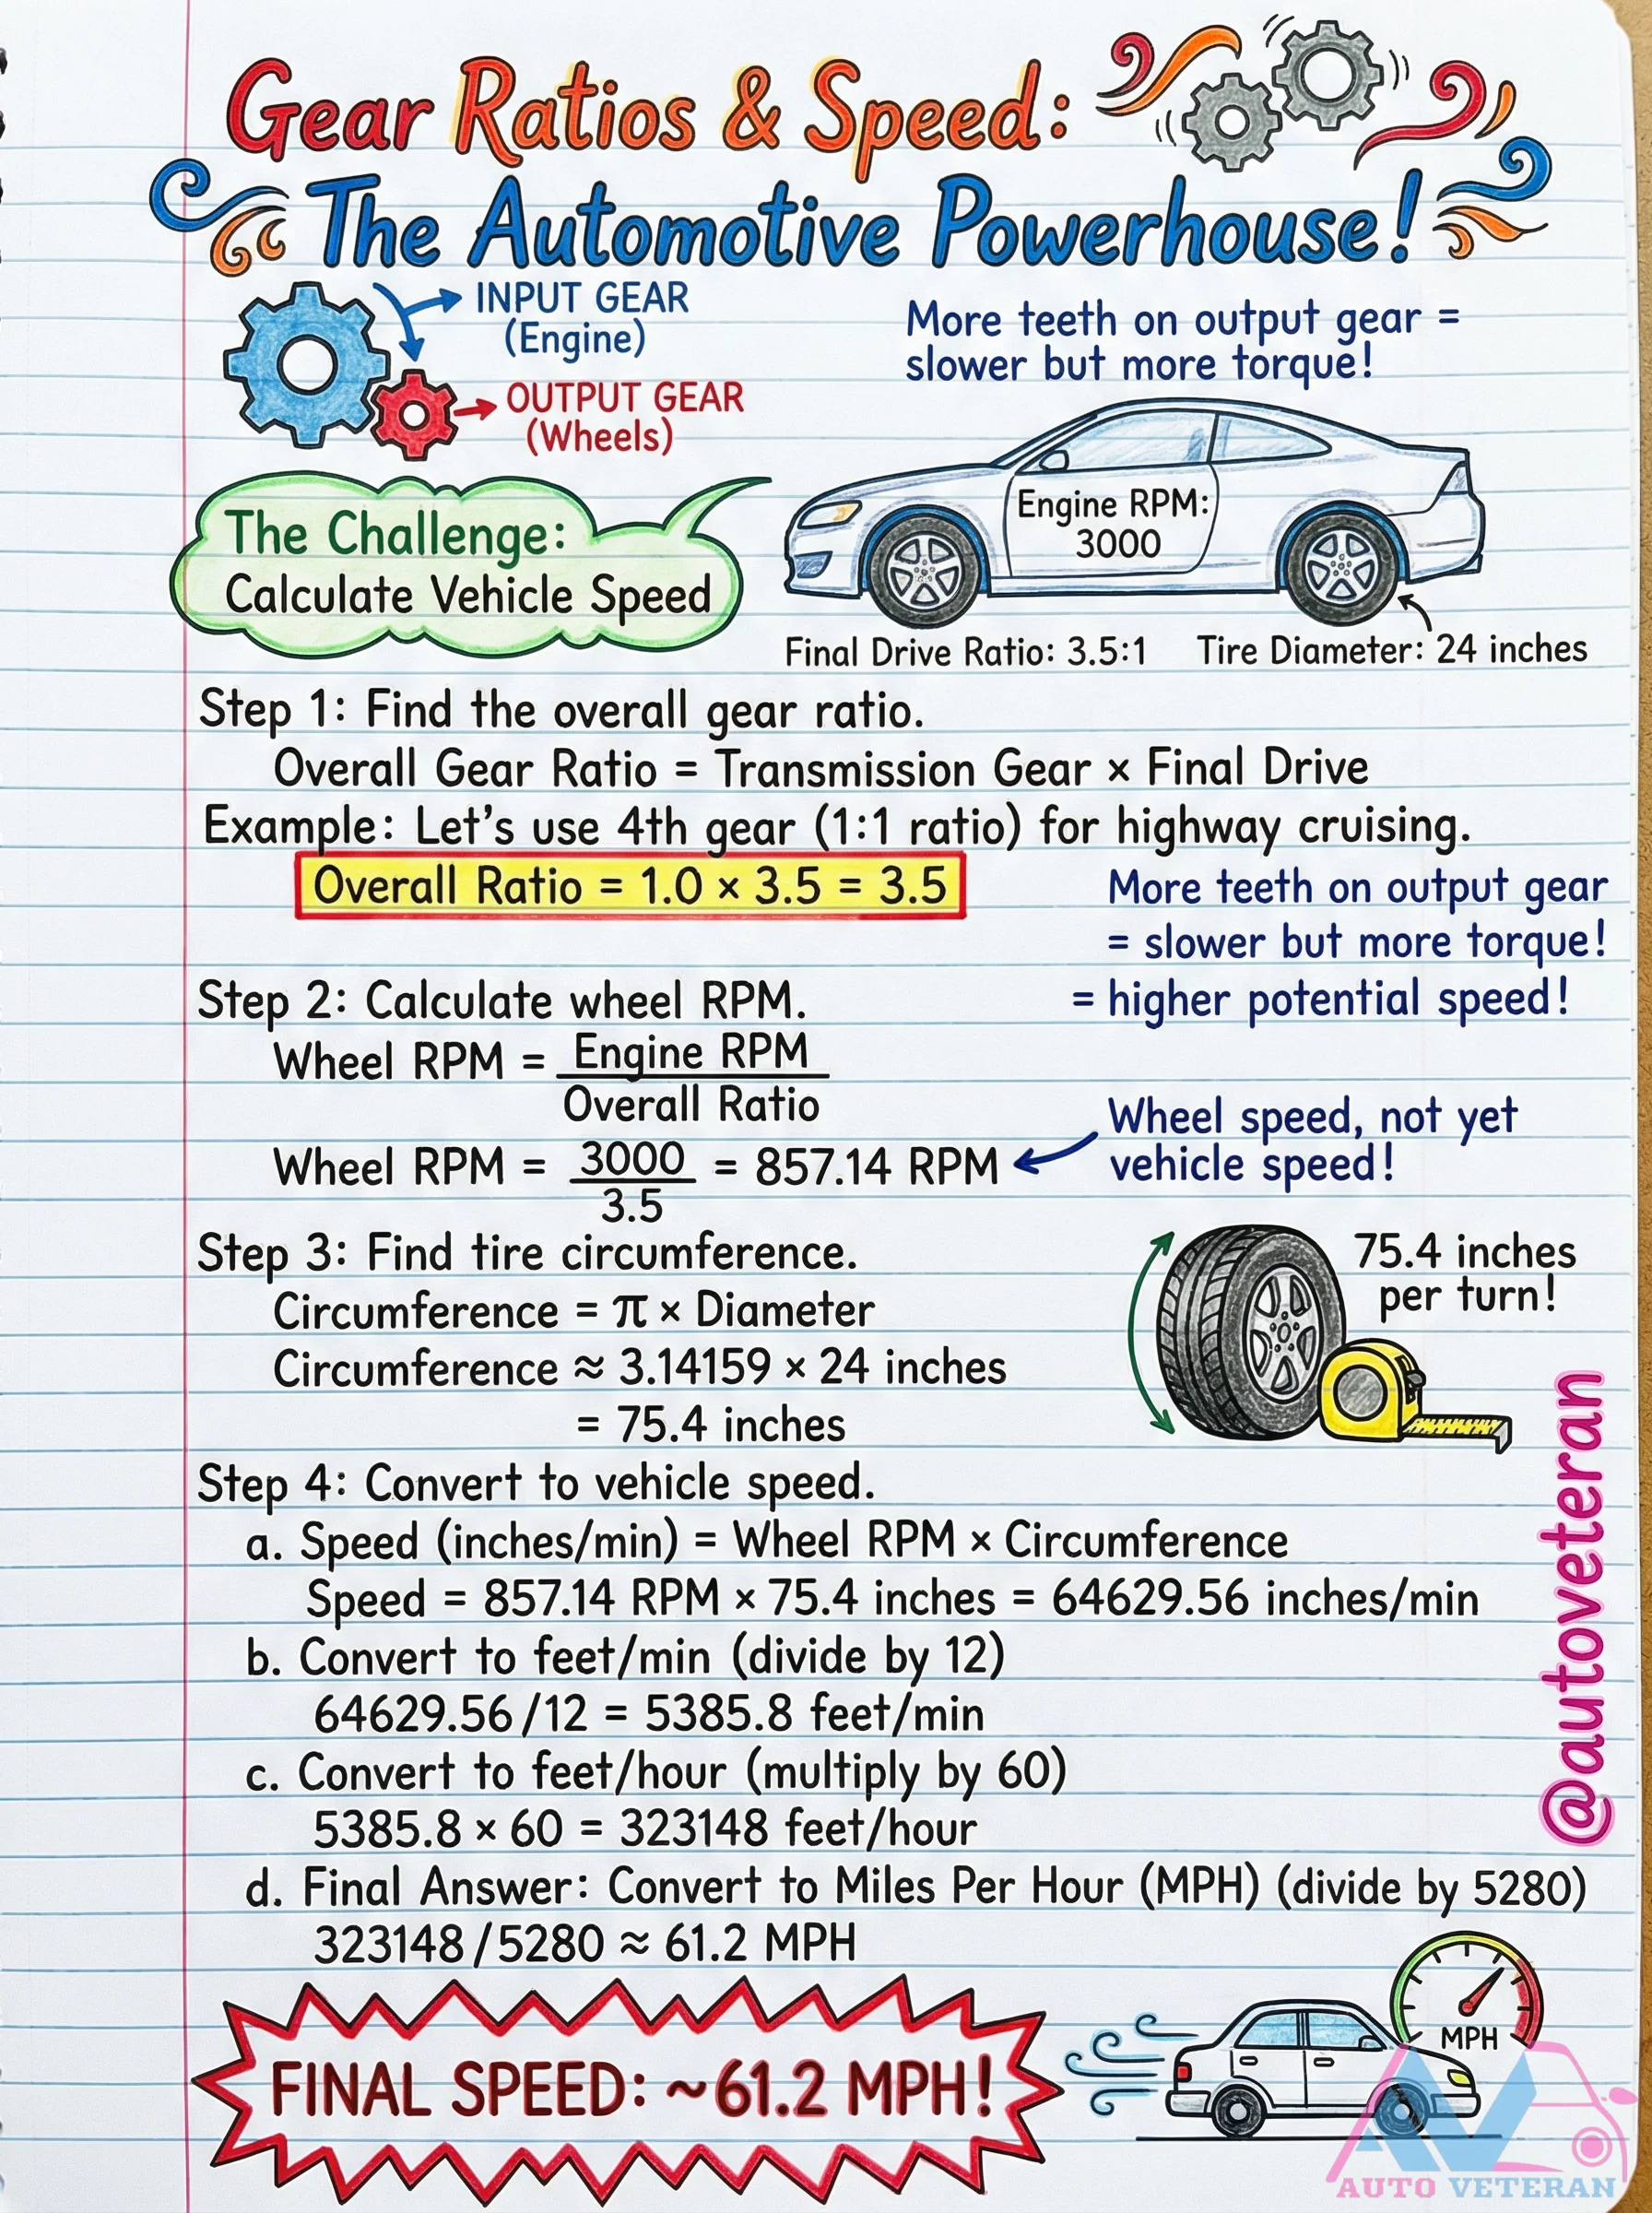 Gear Ratios & Speed:
The Automotive Powerhouse!
INPUT GEAR
(Engine)
OUTPUT GEAR
(Wheels)
More teeth on output gear =
slower but more torque!
The Challenge:
Calculate Vehicle Speed
Engine RPM:
3000
Final Drive Ratio: 3.5:1
Tire Diameter: 24 inches
Step 1: Find the overall gear ratio.
Overall Gear Ratio = Transmission Gear × Final Drive
Example: Let's use 4th gear (1:1 ratio) for highway cruising.
Overall Ratio = 1.0 × 3.5 = 3.5
More teeth on output gear
= slower but more torque!
= higher potential speed!
Step 2: Calculate wheel RPM.
Wheel RPM = Engine RPM
Overall Ratio
Wheel RPM = 3000 = 857.14 RPM
3.5
Wheel speed, not yet
vehicle speed!
Step 3: Find tire circumference.
Circumference = π × Diameter
Circumference ≈ 3.14159 × 24 inches
= 75.4 inches
75.4 inches
per turn!
Step 4: Convert to vehicle speed.
a. Speed (inches/min) = Wheel RPM × Circumference
Speed = 857.14 RPM × 75.4 inches = 64629.56 inches/min
b. Convert to feet/min (divide by 12)
64629.56/12 = 5385.8 feet/min
c. Convert to feet/hour (multiply by 60)
5385.8 × 60 = 323148 feet/hour
d. Final Answer: Convert to Miles Per Hour (MPH) (divide by 5280)
323148/5280 ≈ 61.2 MPH
FINAL SPEED: ~61.2 MPH!
MPH
@autoveteran
AV
AUTO VETERAN